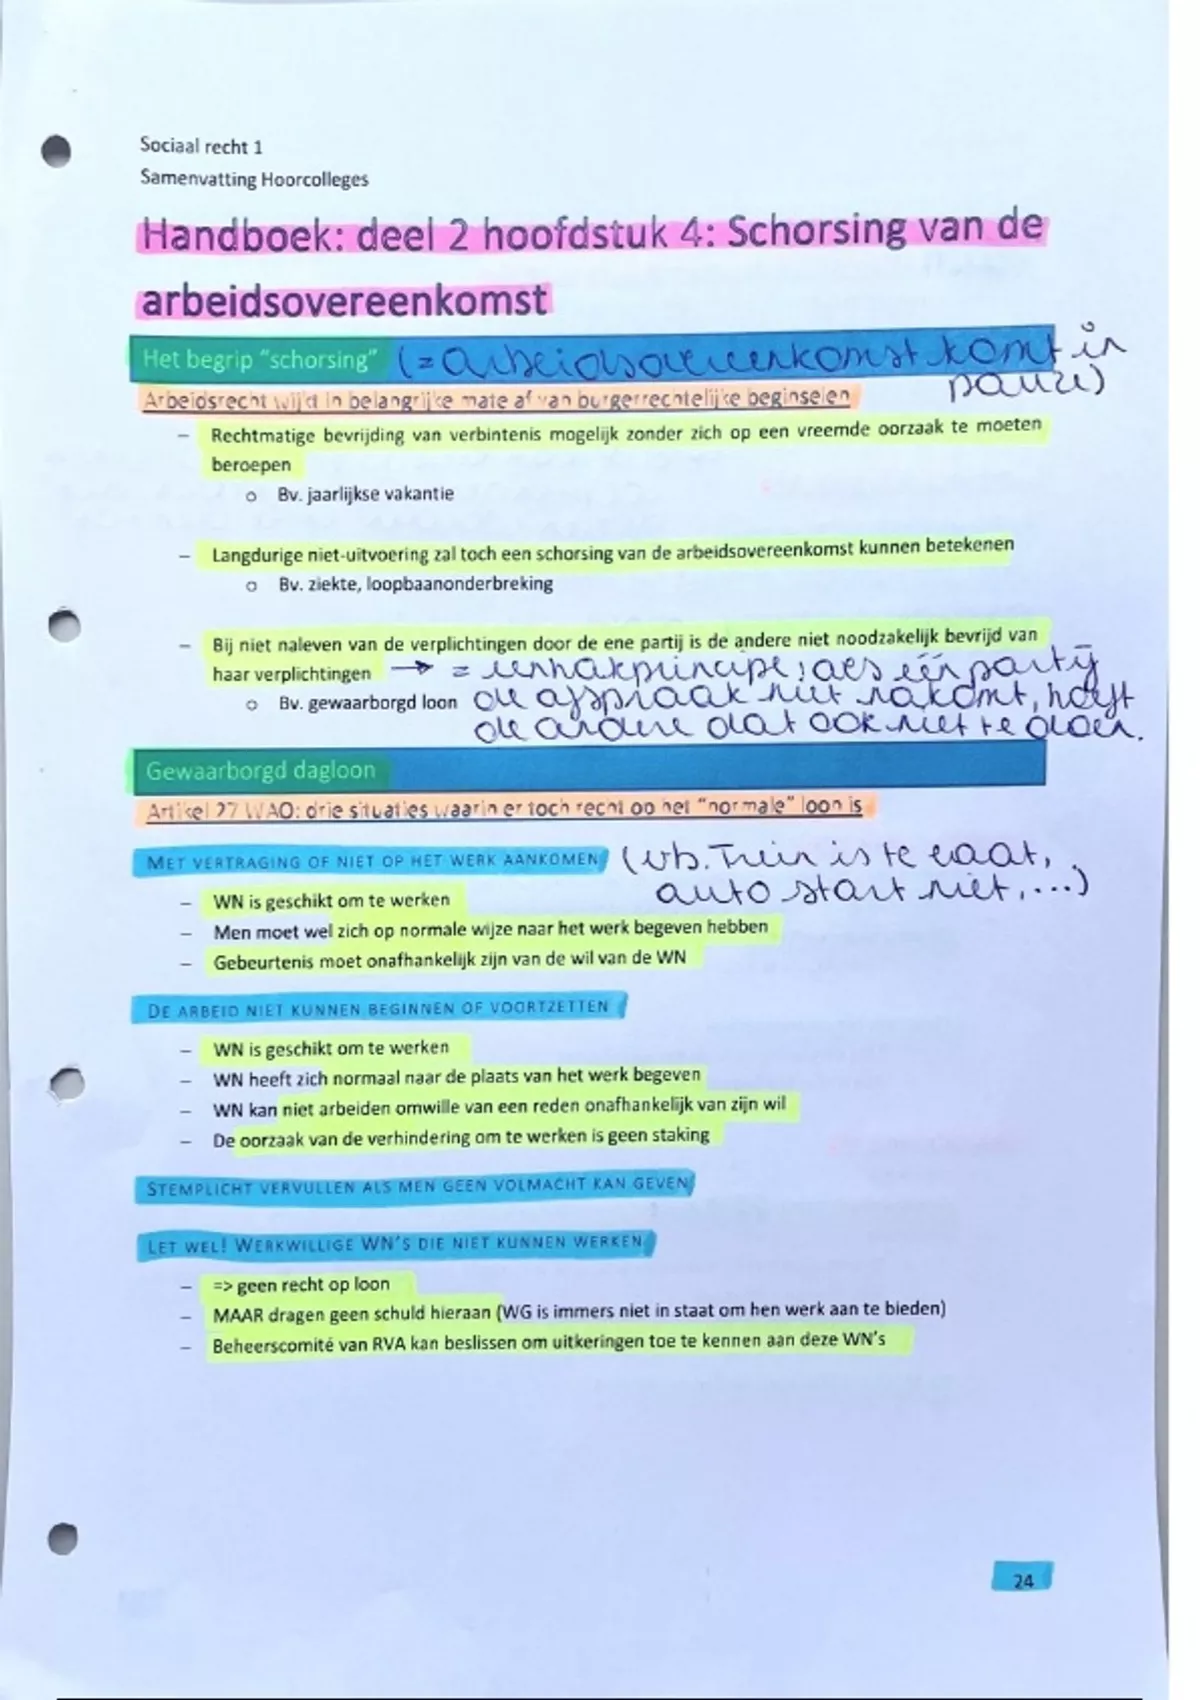 Sociaal recht 1
Samenvatting Hoorcolleges
Handboek: deel 2 hoofdstuk 4: Schorsing van de
arbeidsovereenkomst
Het begrip "schorsing" (= arbeidsovereenkomst komt in
pauze)
Arbeidsrecht wijkt in belangrijke mate af van burgerrechtelijke beginselen
– Rechtmatige bevrijding van verbintenis mogelijk zonder zich op een vreemde oorzaak te moeten
beroepen
o Bv. jaarlijkse vakantie
– Langdurige niet-uitvoering zal toch een schorsing van de arbeidsovereenkomst kunnen betekenen
o Bv. ziekte, loopbaanonderbreking
– Bij niet naleven van de verplichtingen door de ene partij is de andere niet noodzakelijk bevrijd van
haar verplichtingen → = wrakprincipe: als één partij
o Bv. gewaarborgd loon de afspraak niet nakomt, hoeft
de andere dat ook niet te doen.
Gewaarborgd dagloon
Artikel 27 WAO: drie situaties waarin er toch recht op het "normale" loon is
MET VERTRAGING OF NIET OP HET WERK AANKOMEN (vb. Trein is te laat,
auto start niet, ...)
– WN is geschikt om te werken
– Men moet wel zich op normale wijze naar het werk begeven hebben
– Gebeurtenis moet onafhankelijk zijn van de wil van de WN
DE ARBEID NIET KUNNEN BEGINNEN OF VOORTZETTEN
– WN is geschikt om te werken
– WN heeft zich normaal naar de plaats van het werk begeven
– WN kan niet arbeiden omwille van een reden onafhankelijk van zijn wil
– De oorzaak van de verhindering om te werken is geen staking
STEMPLICHT VERVULLEN ALS MEN GEEN VOLMACHT KAN GEVEN
LET WEL! WERKWILLIGE WN'S DIE NIET KUNNEN WERKEN
– => geen recht op loon
– MAAR dragen geen schuld hieraan (WG is immers niet in staat om hen werk aan te bieden)
– Beheerscomité van RVA kan beslissen om uitkeringen toe te kennen aan deze WN's
24